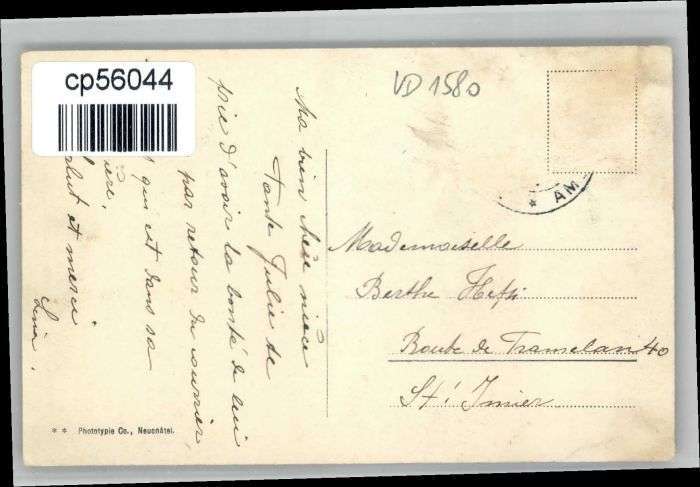 cp56044
VD 1580
AM
Ma bien chère nièce
Tante Julie te
prie d'avoir la bonté de lui
par retour du courrier,
qui est dans sa
salut et merci
Lina.
Mademoiselle
Berthe Hefti
Route de Tramelan 40
St. Imier
** Phototypie Co., Neuchâtel.